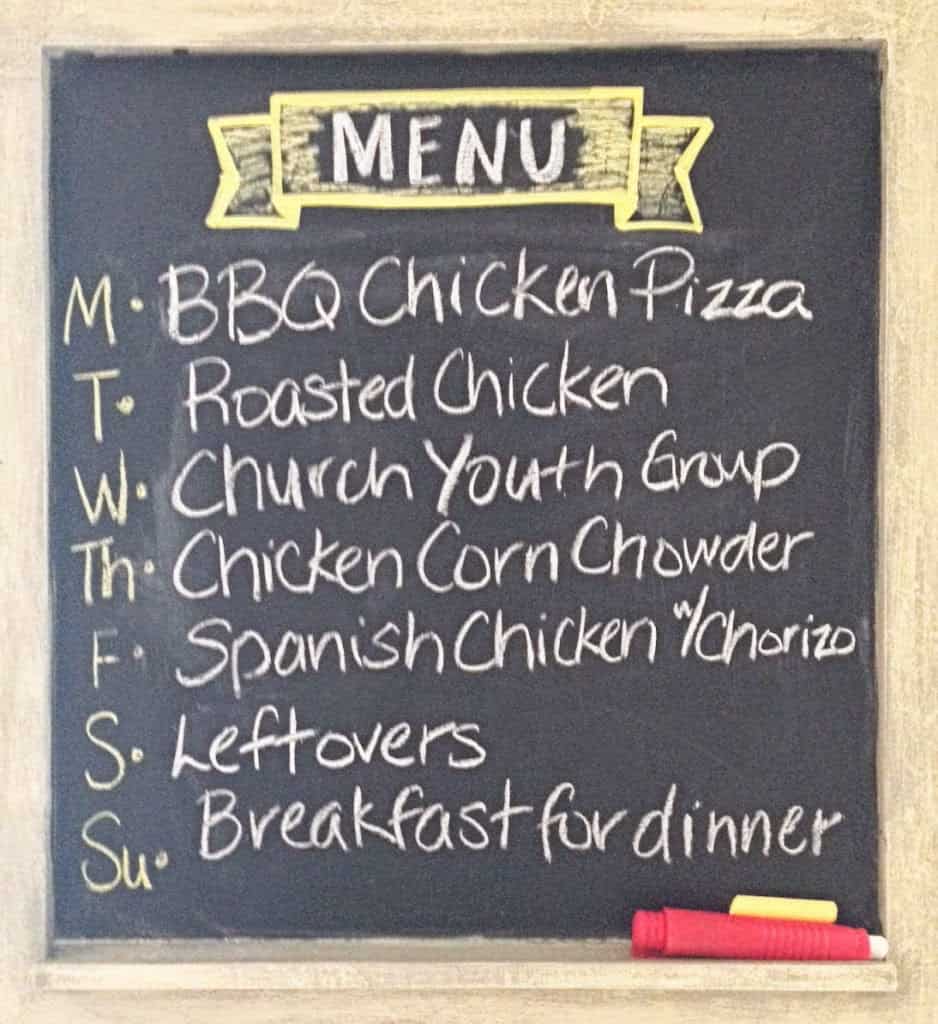 MENU
M. BBQ Chicken Pizza
T. Roasted Chicken
W. Church Youth Group
Th. Chicken Corn Chowder
F. Spanish Chicken w/Chorizo
S. Leftovers
Su. Breakfast for dinner